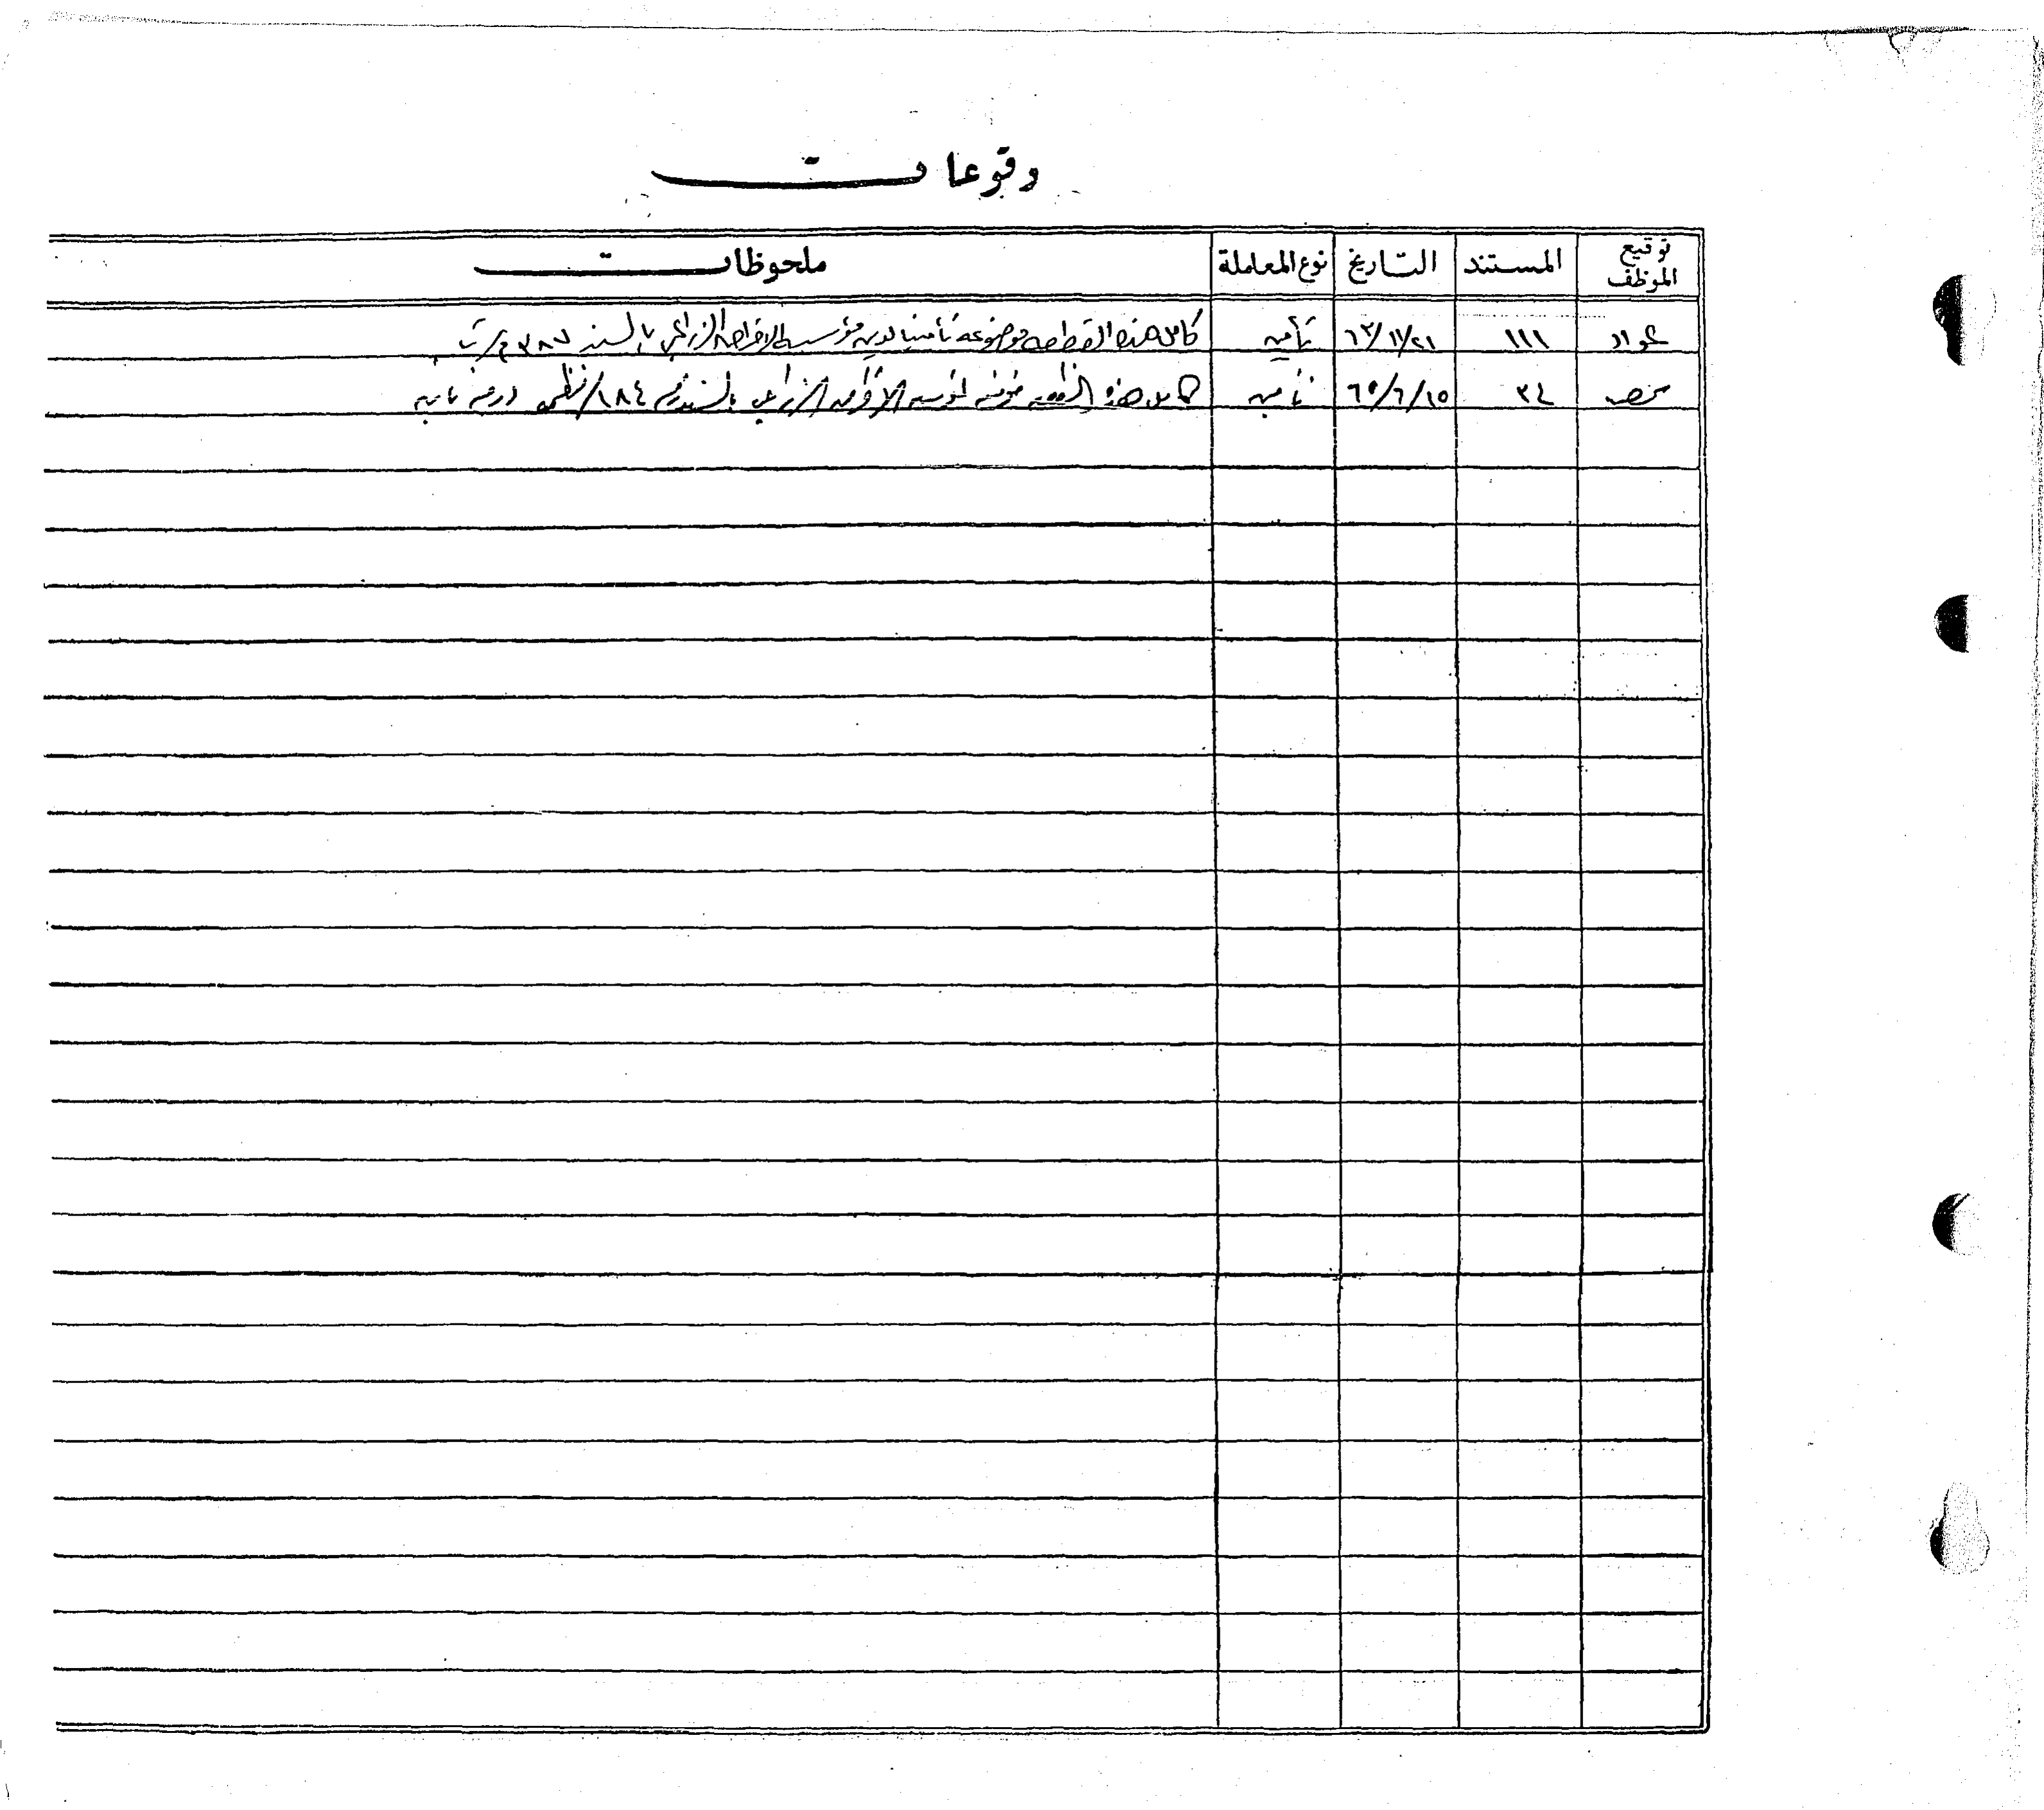 وقوعات
توقيع الموظف المستند التاريخ نوع المعاملة ملحوظات
عواد ١١١ ٦٣/١١/٢١ تأمين كامل هذه القطعة موضوعة تأمينا لدين مؤسسة الاقراض الزراعي بالسند ٣٨٧
٣٤ ٦٥/٦/١٥ تأمين كامل هذه القطعة لمؤسسة الاقراض الزراعي بالسند رقم ١٨٤/ درجة ثانية